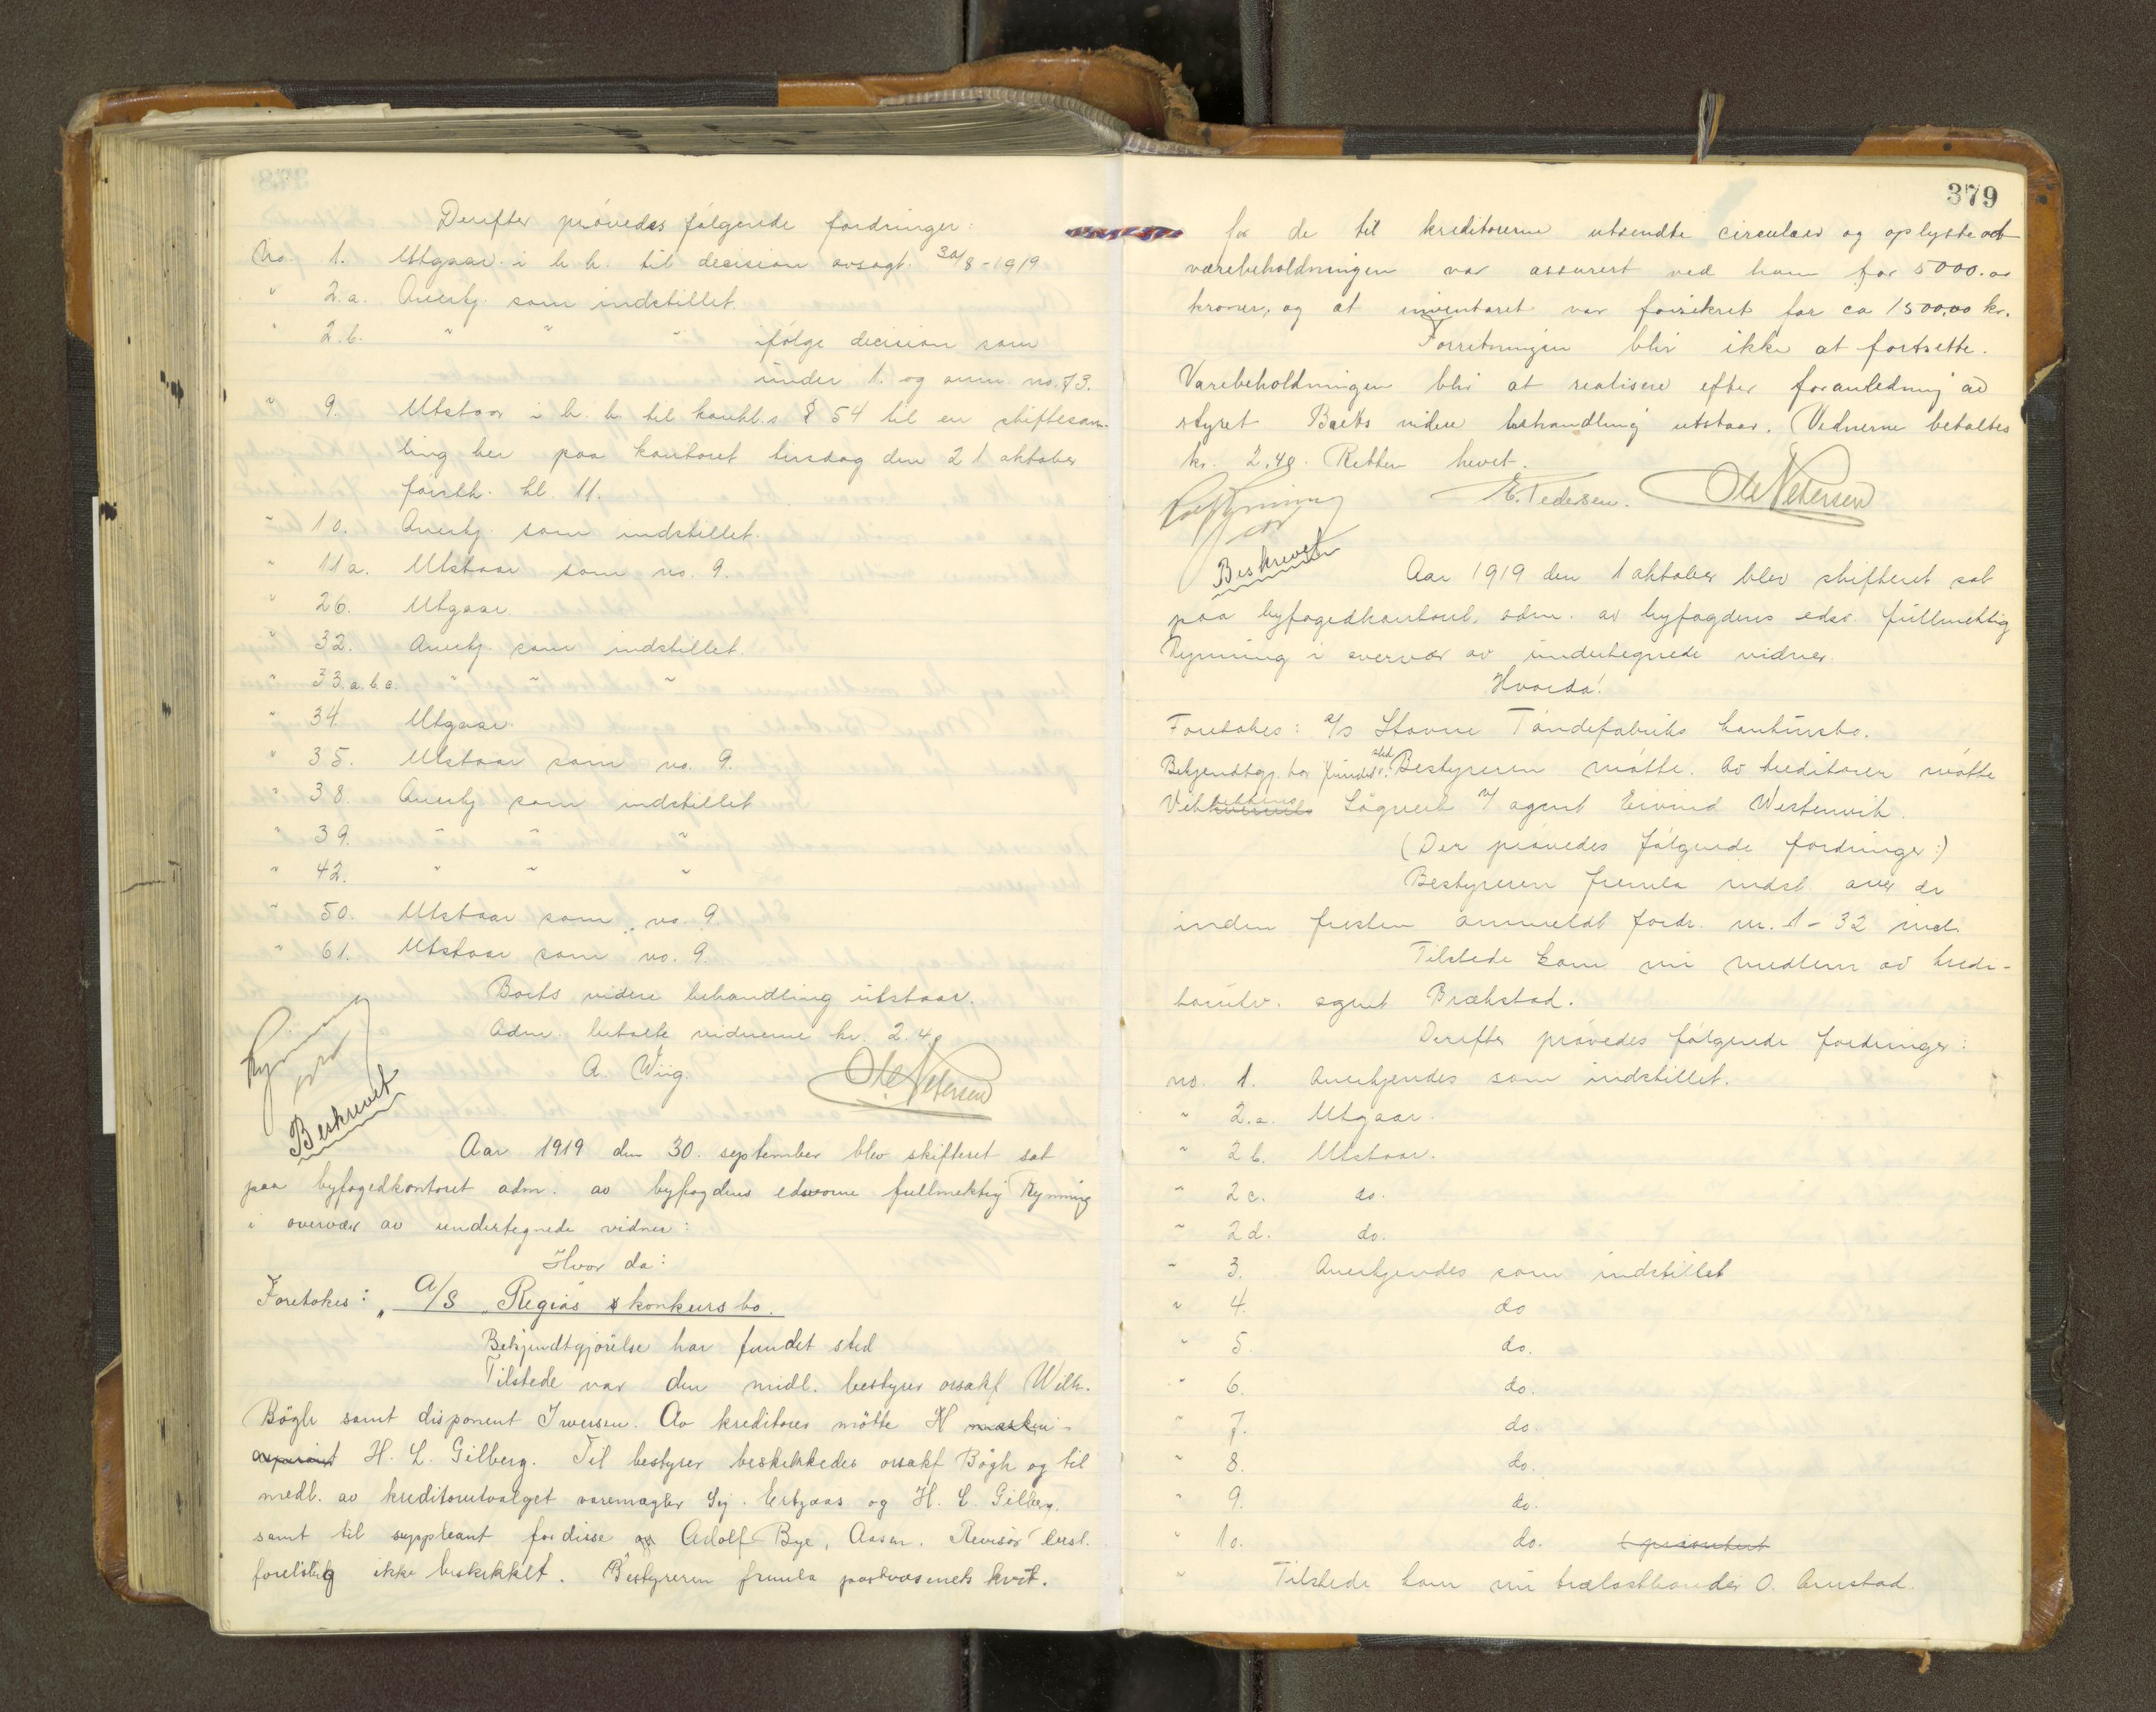 Derefter prövedes følgende fordringer:
No. 1. Utgaar i h. h. til decision avsagt 30/8-1919
" 2.a. Anerkj. som indstillet.
" 2.b. " " " ifölge decision som
under 1. og anm. no. 73.
" 9. Utstaar i h. h. til konkl.s § 54 til en skiftesam-
ling her paa kontoret tirsdag den 21 oktober
førstk. kl. 11.
" 10. Anerkj. som indstillet.
" 11a. Utstaar som no. 9.
" 26. Utgaar
" 32. Anerkj. som indstillet.
" 33.a.b.c. " " "
" 34. Utgaar.
" 35. Utstaar som no. 9.
" 38. Anerkj som indstillet
" 39. " " "
" 42. " " "
" 50. Utstaar som no. 9.
" 61. Utstaar som no. 9.
Boets videre behandling utstaar.
Adm. betalte vidnerne kr. 2.40
Rynning
A. Wiig. Ole Petersen
Beskrevet
Aar 1919 den 30. september blev skifteret sat
paa byfogedkontoret adm. av byfogdens edsvorne fullmektig Rynning
i overvær av undertegnede vidner:
Hvor da:
Foretokes: „A/S „Regias" konkursbo.
Bekjendtgjörelse har fundet sted
Tilstede var den midl. bestyrer orsakf Wilh.
Bögh samt disponent Iversen. Av kreditorer mötte H maskin-
H. L. Gilberg. Til bestyrer beskikkedes orsakf Bögh og til
medl. av kreditorutvalget varemægler Sig. Ertzaas og H. L. Gilberg.
samt til suppleant for disse Adolf Bye, Aasen. Revisor
forelöbig ikke beskikket. Bestyreren fremla postvæsenets kvit.
379
for de til kreditorerne utsendte circulær og oplyste at
varebeholdningen var assurert ved ham for 5000.00
kroner, og at inventaret var forsikret for ca 1500,00 kr.
Forretningen blir ikke at fortsette.
Varebeholdningen blir at realisere efter foranledning av
styret Boets videre behandling utstaar. Vidnerne betaltes
kr. 2.40. Retten hevet.
Rynning E. Pedersen. Ole Petersen
Beskrevet
Aar 1919 den 1 oktober blev skifteret sat
paa byfogedkontoret, adm. av byfogdens edsv. fullmektig
Rynning i overvær av undertegnede vidner.
Hvorda:
Foretokes: A/S Stavne Töndefabriks konkursbo.
Bekjendtgj. har fundet sted. Bestyreren mötte. Av kreditorer mötte
Sagverk v/ agent Eivind Westenvik.
(Der prövedes fölgende fordringer:)
Bestyreren fremla indst. over de
inden fristen anmeldt fordr. nr. 1-32 incl.
Tilstede kom nu medlem av kredi-
torutv. agent Brækstad.
Derefter prövedes fölgende fordringer:
no. 1. Anerkjendes som indstillet.
" 2.a. Utgaar.
" 2b. Utstaar.
" 2c. do.
" 2d. do.
" 3. Anerkjendes som indstillet
" 4. do
" 5. do.
" 6. do.
" 7. do.
" 8. do.
" 9. do.
" 10. do. (prioritert
" Tilstede kom nu trælasthandler O. Arnstad.